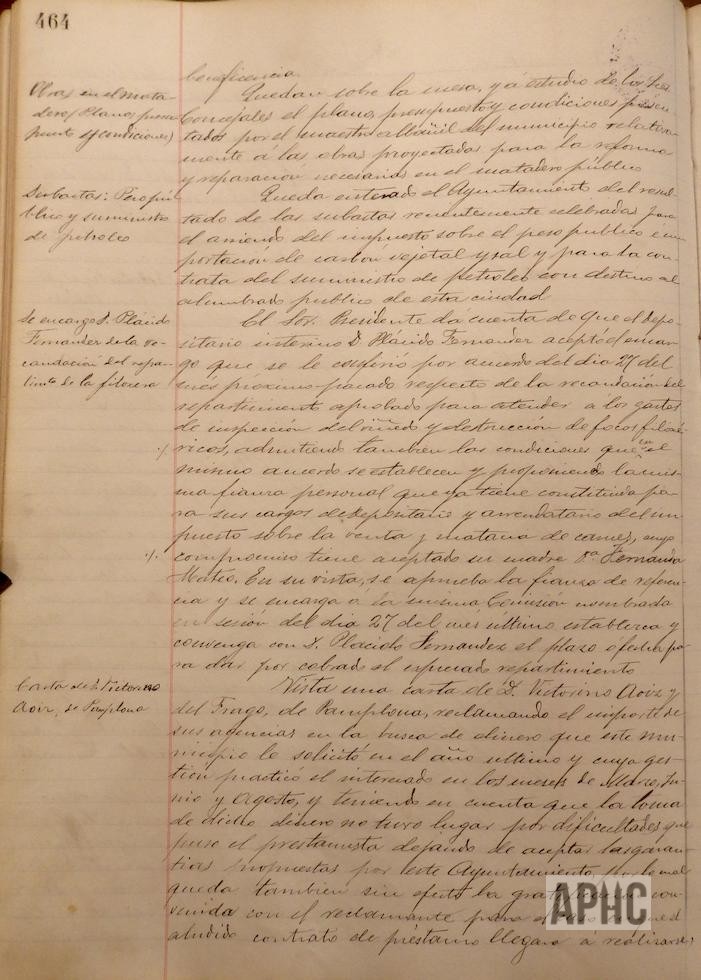 464
beneficencia.
Obras en el mata-
dero (Planos, presu-
puesto y condiciones)
Quedan sobre la mesa, y á estudio de los Sres.
Concejales el plano, presupuesto y condiciones presen-
tados por el maestro albañil del municipio relativa-
mente á las obras proyectadas para la reforma
y reparacion necesarias en el matadero público
Subastas: Peso pú-
blico y suministro
de petroleo
Queda enterado el Ayuntamiento del resul-
tado de las subastas recientemente celebradas para
el arriendo del impuesto sobre el peso publico é im-
portación de carbon vejetal y sal y para la con-
trata del suministro de petroleo con destino al
alumbrado publico de esta ciudad
Se encarga D. Plácido
Fernandez de la re-
caudacion del repar-
timto de la filoxera
El Sor. Presidente dá cuenta de que el depo-
sitario interino D. Plácido Fernandez aceptó el encar-
go que se le confirió por acuerdo del dia 27 del
mes próximo pasado respecto de la recaudación del
repartimiento aprobado para atender á los gastos
de inspección del viñedo y destrucción de focos filoxé-
ricos, admitiendo tambien las condiciones que en el
mismo acuerdo se establecen y proponiendo la mis-
ma fianza personal que ya tiene constituida pa-
ra sus cargos de depositario y arrendatario del im-
puesto sobre la venta y matanza de carnes, cuyo
compromiso tiene aceptado su madre Da. Fernanda
Mateo. En su vista, se aprueba la fianza de referen-
cia y se encarga á la misma Comisión nombrada
en sesión del dia 27 del mes ultimo establezca y
convenga con D. Placido Fernandez el plazo ó fecha pa-
ra dar por cobrado el espresado repartimiento
Carta de D. Victorino
Aoiz, de Pamplona
Vista una carta de D. Victorino Aoiz y
del Frago, de Pamplona, reclamando el importe de
sus agencias en la busca de dinero que este mu-
nicipio le solicitó en el año ultimo y cuya ges-
tion practicó el interesado en los meses de Marzo, Ju-
nio y Agosto, y teniendo en cuenta que la toma
de dicho dinero no tuvo lugar por dificultades que
puso el prestamista dejando de aceptar las garan-
tias propuestas por este Ayuntamiento, por lo cual
queda tambien sin efecto la gratificacion con-
venida con el reclamante para el
aludido contrato de préstamo llegara a realizarse,
APHC